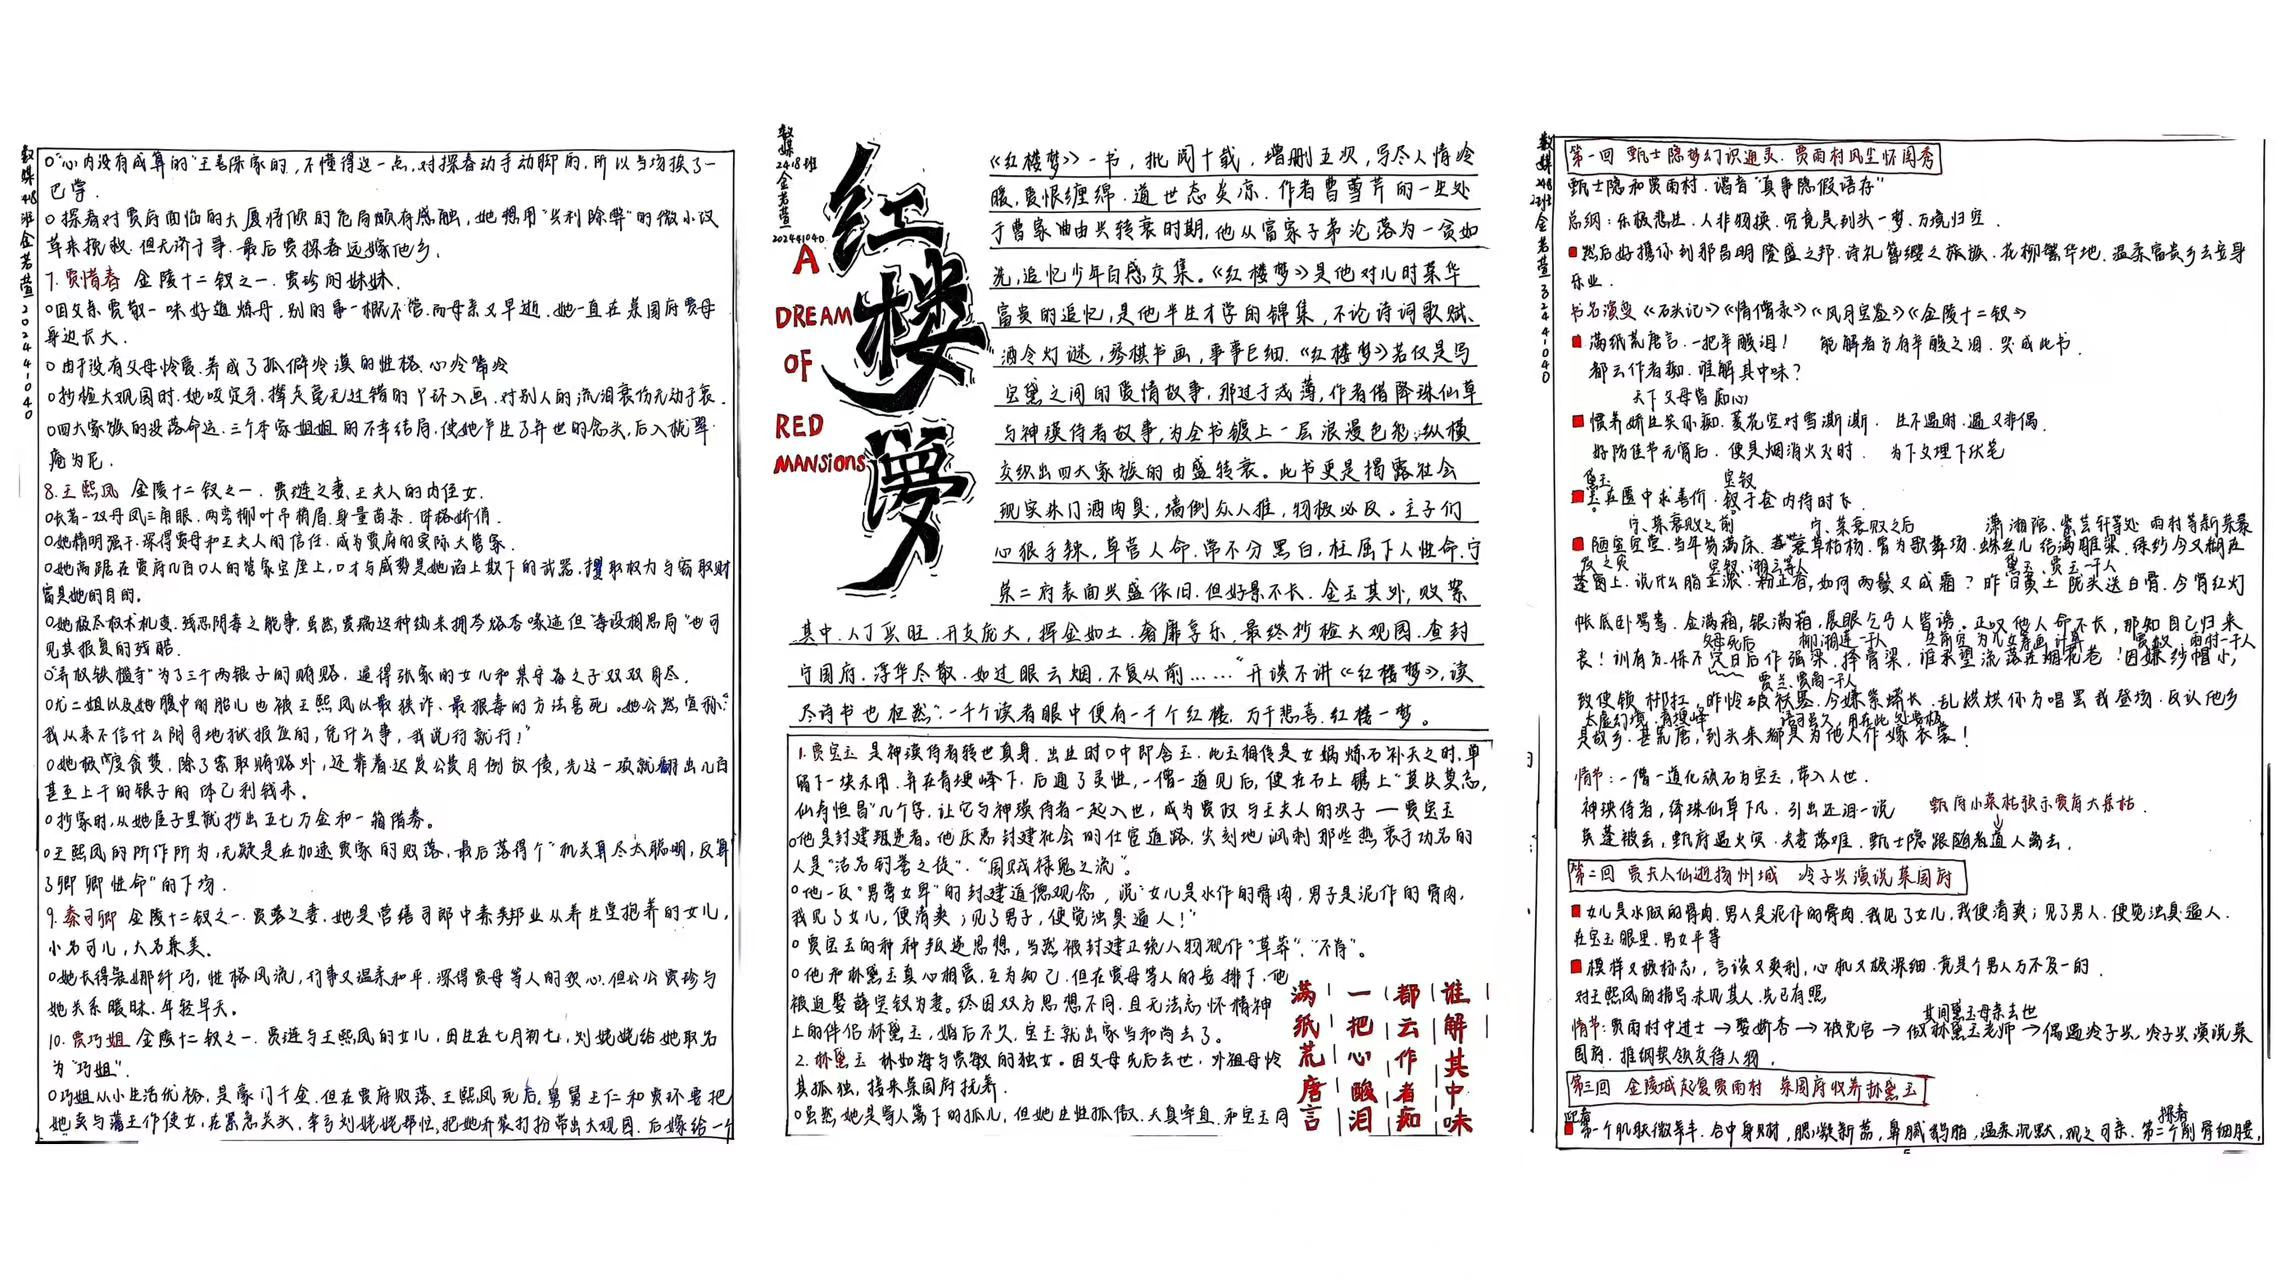 数媒2418班金若萱202441040
○“心内没有成算的”王善保家的,不懂得这一点,对探春动手动脚的,所以与场挨了一
巴掌.
○探春对贾府面临的大厦将倾的危局颇有感触,她想用“兴利除弊”的微小改
革来挽救.但无济于事.最后贾探春远嫁他乡.
7.贾惜春 金陵十二钗之一.贾珍的妹妹.
○因父亲贾敬一味好道炼丹,别的事一概不管.而母亲又早逝.她一直在荣国府贾母
身边长大.
○由于没有父母怜爱.养成了孤僻冷漠的性格.心冷嘴冷
○抄检大观园时.她咬定牙,撵走毫无过错的丫环入画.对别人的流泪哀伤无动于衷.
○四大家族的没落命运.三个本家姐姐的不幸结局.使她产生了弃世的念头,后入栊翠
庵为尼.
8.王熙凤 金陵十二钗之一.贾琏之妻、王夫人的内侄女.
○长着一双丹凤三角眼.两弯柳叶吊梢眉.身量苗条.体格娇俏.
○她精明强干.深得贾母和王夫人的信任.成为贾府的实际大管家.
○她高踞在贾府几百口人的管家宝座上,口才与威势是她谄上欺下的武器.攫取权力与窃取财
富是她的目的.
○她极尽权术机变.残忍阴毒之能事,虽然贾瑞这种纨绔
见其报复的残酷.
○“弄权铁槛寺”为了三千两银子的贿赂.逼得张家的女儿和某守备之子双双自尽.
○尤二姐以及她腹中的胎儿也被王熙凤以最狡诈、最狠毒的方法害死。她公然宣称:“
我从来不信什么阴司地狱报应的,凭什么事,我说行就行!”
○她极度贪婪.除了索取贿赂外,还靠着迟发公费月例放债,光这一项就翻出几百
甚至上千的银子的体己利钱来.
○抄家时,从她屋子里就抄出五七万金和一箱借券。
○王熙凤的所作所为,无疑是在加速贾家的败落,最后落得个“机关算尽太聪明,反算
了卿卿性命”的下场.
9.秦可卿 金陵十二钗之一.贾蓉之妻.她是营缮司郎中秦邦业从养生堂抱养的女儿,
小名可儿,大名兼美.
○她长得袅娜纤巧,性格风流,行事又温柔和平.深得贾母等人的欢心.但公公贾珍与
她关系暧昧.年轻早夭。
10.贾巧姐 金陵十二钗之一.贾琏与王熙凤的女儿,因生在七月初七,刘姥姥给她取名
为“巧姐”.
○巧姐从小生活优裕,是豪门千金.但在贾府败落、王熙凤死后,舅舅王仁和贾环要把
她卖与藩王作使女,在紧急关头,幸亏刘姥姥帮忙,把她乔装打扮带出大观园.后嫁给一个
数媒
2418班
金若萱
202441040
红楼梦
A
DREAM
OF
RED
MANSIONS
《红楼梦》一书,批阅十载,增删五次,写尽人情冷
暖,爱恨缠绵.道世态炎凉.作者曹雪芹的一生处
于曹家由兴转衰时期,他从富家子弟沦落为一贫如
洗,追忆少年百感交集。《红楼梦》是他对儿时荣华
富贵的追忆,是他半生才学的锦集,不论诗词歌赋、
酒令灯谜,琴棋书画,事事巨细.《红楼梦》若仅是写
宝黛之间的爱情故事,那过于浅薄,作者借降珠仙草
与神瑛侍者故事,为全书镀上一层浪漫色彩,纵横
交织出四大家族的由盛转衰。此书更是揭露社会
现实朱门酒肉臭,墙倒众人推,物极必反。主子们
心狠手辣,草菅人命.常不分黑白,枉屈下人性命.宁
荣二府表面兴盛依旧.但好景不长.金玉其外,败絮
其中.人丁兴旺.开支庞大,挥金如土.奢靡享乐.最终抄检大观园.查封
宁国府.浮华尽散.如过眼云烟,不复从前……“开谈不讲《红楼梦》,读
尽诗书也枉然”.一千个读者眼中便有一千个红楼.万千悲喜.红楼一梦。
1.贾宝玉 是神瑛侍者转世真身.出生时口中即含玉.此玉相传是女娲炼石补天之时,单
留下一块未用.弃在青埂峰下.后通了灵性,一僧一道见后,便在石上镌上“莫失莫忘,
仙寿恒昌”几个字.让它与神瑛侍者一起入世,成为贾政与王夫人的次子——贾宝玉
○他是封建叛逆者。他厌恶封建社会的仕宦道路,尖刻地讽刺那些热衷于功名的
人是“沽名钓誉之徒”.“国贼禄鬼之流”。
○他一反“男尊女卑”的封建道德观念,说“女儿是水作的骨肉,男子是泥作的骨肉,
我见了女儿,便清爽;见了男子,便觉浊臭逼人!”
○贾宝玉的种种叛逆思想,当然被封建正统人物视作“草莽”、“不肖”。
○他和林黛玉真心相爱,互为知己.但在贾母等人的安排下.他
被迫娶薛宝钗为妻。终因双方思想不同.且无法忘怀精神
上的伴侣林黛玉,婚后不久.宝玉就出家当和尚去了。
2.林黛玉 林如海与贾敏的独女。因父母先后去世.外祖母怜
其孤独,接来荣国府抚养.
○虽然她是寄人篱下的孤儿,但她生性孤傲、天真率直.和宝玉同
满纸荒唐言
一把心酸泪
都云作者痴
谁解其中味
数媒2418班金若萱202441040
第一回 甄士隐梦幻识通灵.贾雨村风尘怀闺秀
甄士隐和贾雨村.谐音“真事隐假语存”
总纲:乐极悲生.人非物换.究竟是到头一梦.万境归空.
然后好携你到那昌明隆盛之邦.诗礼簪缨之族.花柳繁华地.温柔富贵乡去安身
乐业.
书名演变《石头记》《情僧录》《风月宝鉴》《金陵十二钗》
满纸荒唐言.一把辛酸泪! 能解者方有辛酸之泪.哭成此书.
都云作者痴.谁解其中味?
天下父母皆痴心
惯养娇生笑你痴.菱花空对雪澌澌. 生不遇时.遇又非偶.
好防佳节元宵后.便是烟消火灭时. 为下文埋下伏笔
黛玉 宝钗
玉在匮中求善价.钗于奁内待时飞.
宁、荣衰败之前 宁、荣衰败之后 潇湘馆、紫芸轩等处 雨村等新荣暴
陋室空堂.当年笏满床.衰草枯杨.曾为歌舞场.蛛丝儿结满雕梁.绿纱今又糊在
发之家 宝钗、湘云等人 黛玉、贾玉一干人
蓬窗上.说什么脂正浓.粉正香,如何两鬓又成霜?昨日黄土陇头送白骨.今宵红灯
帐底卧鸳鸯.金满箱,银满箱,展眼乞丐人皆谤.正叹他人命不长,那知自己归来
柳湘莲一干人 贾赦、雨村一干人
丧!训有方.保不定日后作强梁.择膏粱,谁承望流落在烟花巷!因嫌纱帽小,
贾兰、贾菌一干人
致使锁枷扛.昨怜破袄寒.今嫌紫蟒长.乱烘烘你方唱罢我登场.反认他乡
太虚幻境、青埂峰
是故乡.甚荒唐,到头来都是为他人作嫁衣裳!
情节:一僧一道化顽石为宝玉,带入人世.
神瑛侍者,绛珠仙草下凡.引出还泪一说 甄府小荣枯预示贾府大荣枯.
英莲被丢,甄府遇火灾.夫妻落难.甄士隐跟随着道人离去.
第二回 贾夫人仙逝扬州城 冷子兴演说荣国府
女儿是水做的骨肉.男人是泥作的骨肉.我见了女儿,我便清爽;见了男人.便觉浊臭逼人.
在宝玉眼里.男女平等
模样又极标志,言谈又爽利,心机又极深细.竟是个男人万不及一的.
对王熙凤的描写.未见其人.先已有照.
其间黛玉母亲去世
情节:贾雨村中进士→娶娇杏→被免官→做林黛玉老师→偶遇冷子兴,冷子兴演说荣
国府.提纲挈领交待人物.
第三回 金陵城起复贾雨村 荣国府收养林黛玉
迎春 探春
第一个肌肤微丰.合中身材,腮凝新荔,鼻腻鹅脂,温柔沉默,观之可亲.第二个削肩细腰,